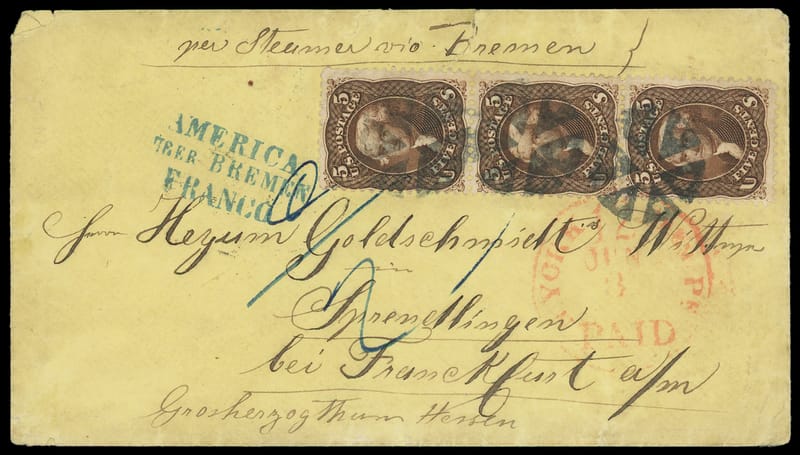 per Steamer via Bremen
U.S. POSTAGE 5 5 FIVE CENTS U S
U.S. POSTAGE 5 5 FIVE CENTS U S
U.S. POSTAGE 5 5 FIVE CENTS U S
AMERICA
ÜBER BREMEN
FRANCO
Herrn Heyum Goldschmidt's Wittwe
in
Sprendlingen
bei Franckfurt a/m
Grosherzogthum Hessen
YORK
3
PAID